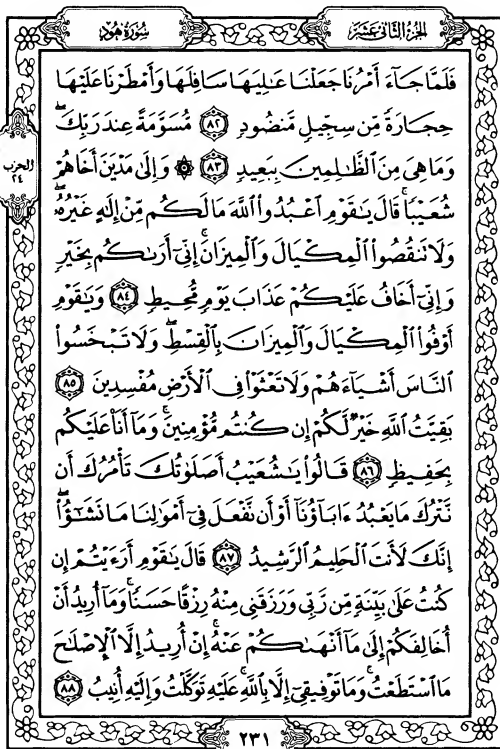 الجزء الثاني عشر
سورة هود
فَلَمَّا جَآءَ أَمْرُنَا جَعَلْنَا عَـٰلِيَهَا سَافِلَهَا وَأَمْطَرْنَا عَلَيْهَا
حِجَارَةً مِّن سِجِّيلٍ مَّنضُودٍ ٨٢ مُّسَوَّمَةً عِندَ رَبِّكَ ۖ
وَمَا هِىَ مِنَ ٱلظَّـٰلِمِينَ بِبَعِيدٍ ٨٣ ۞ وَإِلَىٰ مَدْيَنَ أَخَاهُمْ
شُعَيْبًا ۚ قَالَ يَـٰقَوْمِ ٱعْبُدُوا۟ ٱللَّهَ مَا لَكُم مِّنْ إِلَـٰهٍ غَيْرُهُۥ ۖ
وَلَا تَنقُصُوا۟ ٱلْمِكْيَالَ وَٱلْمِيزَانَ ۚ إِنِّىٓ أَرَىٰكُم بِخَيْرٍ
وَإِنِّىٓ أَخَافُ عَلَيْكُمْ عَذَابَ يَوْمٍ مُّحِيطٍ ٨٤ وَيَـٰقَوْمِ
أَوْفُوا۟ ٱلْمِكْيَالَ وَٱلْمِيزَانَ بِٱلْقِسْطِ ۖ وَلَا تَبْخَسُوا۟
ٱلنَّاسَ أَشْيَآءَهُمْ وَلَا تَعْثَوْا۟ فِى ٱلْأَرْضِ مُفْسِدِينَ ٨٥
بَقِيَّتُ ٱللَّهِ خَيْرٌ لَّكُمْ إِن كُنتُم مُّؤْمِنِينَ ۚ وَمَآ أَنَا۠ عَلَيْكُم
بِحَفِيظٍ ٨٦ قَالُوا۟ يَـٰشُعَيْبُ أَصَلَوٰتُكَ تَأْمُرُكَ أَن
نَّتْرُكَ مَا يَعْبُدُ ءَابَآؤُنَآ أَوْ أَن نَّفْعَلَ فِىٓ أَمْوَٰلِنَا مَا نَشَـٰٓؤُا۟ ۖ
إِنَّكَ لَأَنتَ ٱلْحَلِيمُ ٱلرَّشِيدُ ٨٧ قَالَ يَـٰقَوْمِ أَرَءَيْتُمْ إِن
كُنتُ عَلَىٰ بَيِّنَةٍ مِّن رَّبِّى وَرَزَقَنِى مِنْهُ رِزْقًا حَسَنًا ۚ وَمَآ أُرِيدُ أَنْ
أُخَالِفَكُمْ إِلَىٰ مَآ أَنْهَىٰكُمْ عَنْهُ ۚ إِنْ أُرِيدُ إِلَّا ٱلْإِصْلَـٰحَ
مَا ٱسْتَطَعْتُ ۚ وَمَا تَوْفِيقِىٓ إِلَّا بِٱللَّهِ ۚ عَلَيْهِ تَوَكَّلْتُ وَإِلَيْهِ أُنِيبُ ٨٨
الحزب
٢٤
٢٣١